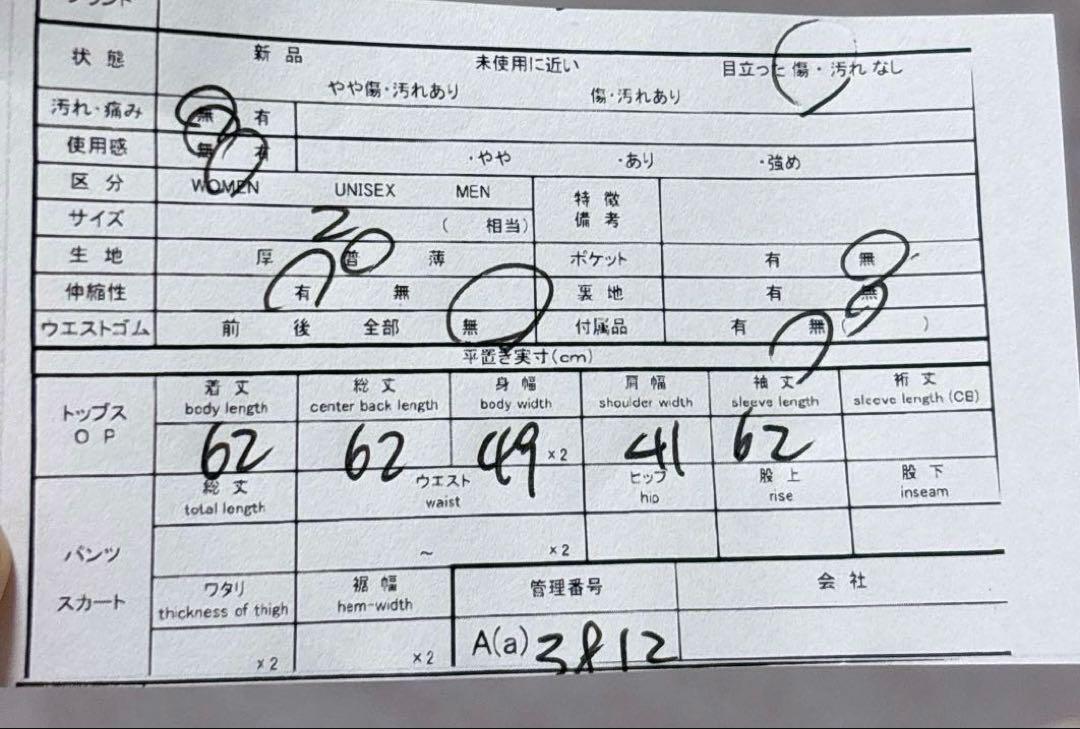 状態 新品 未使用に近い 目立った傷・汚れなし
やや傷・汚れあり 傷・汚れあり
汚れ・痛み 無 有
使用感 無 有 ・やや ・あり ・強め
区分 WOMEN UNISEX MEN 特徴備考
サイズ 2 ( 相当)
生地 厚 普 薄 ポケット 有 無
伸縮性 有 無 裏地 有 無
ウエストゴム 前 後 全部 無 付属品 有 無 ( )
平置き実寸(cm)
トップス OP 着丈 総丈 身幅 肩幅 袖丈 裄丈
body length center back length body width shoulder width sleeve length sleeve length (CB)
62 62 49 ×2 41 62
総丈 ウエスト ヒップ 股上 股下
total length waist hip rise inseam
パンツ ~ ×2
スカート ワタリ 裾幅 管理番号 会社
thickness of thigh hem-width
×2 ×2 A(a) 3812